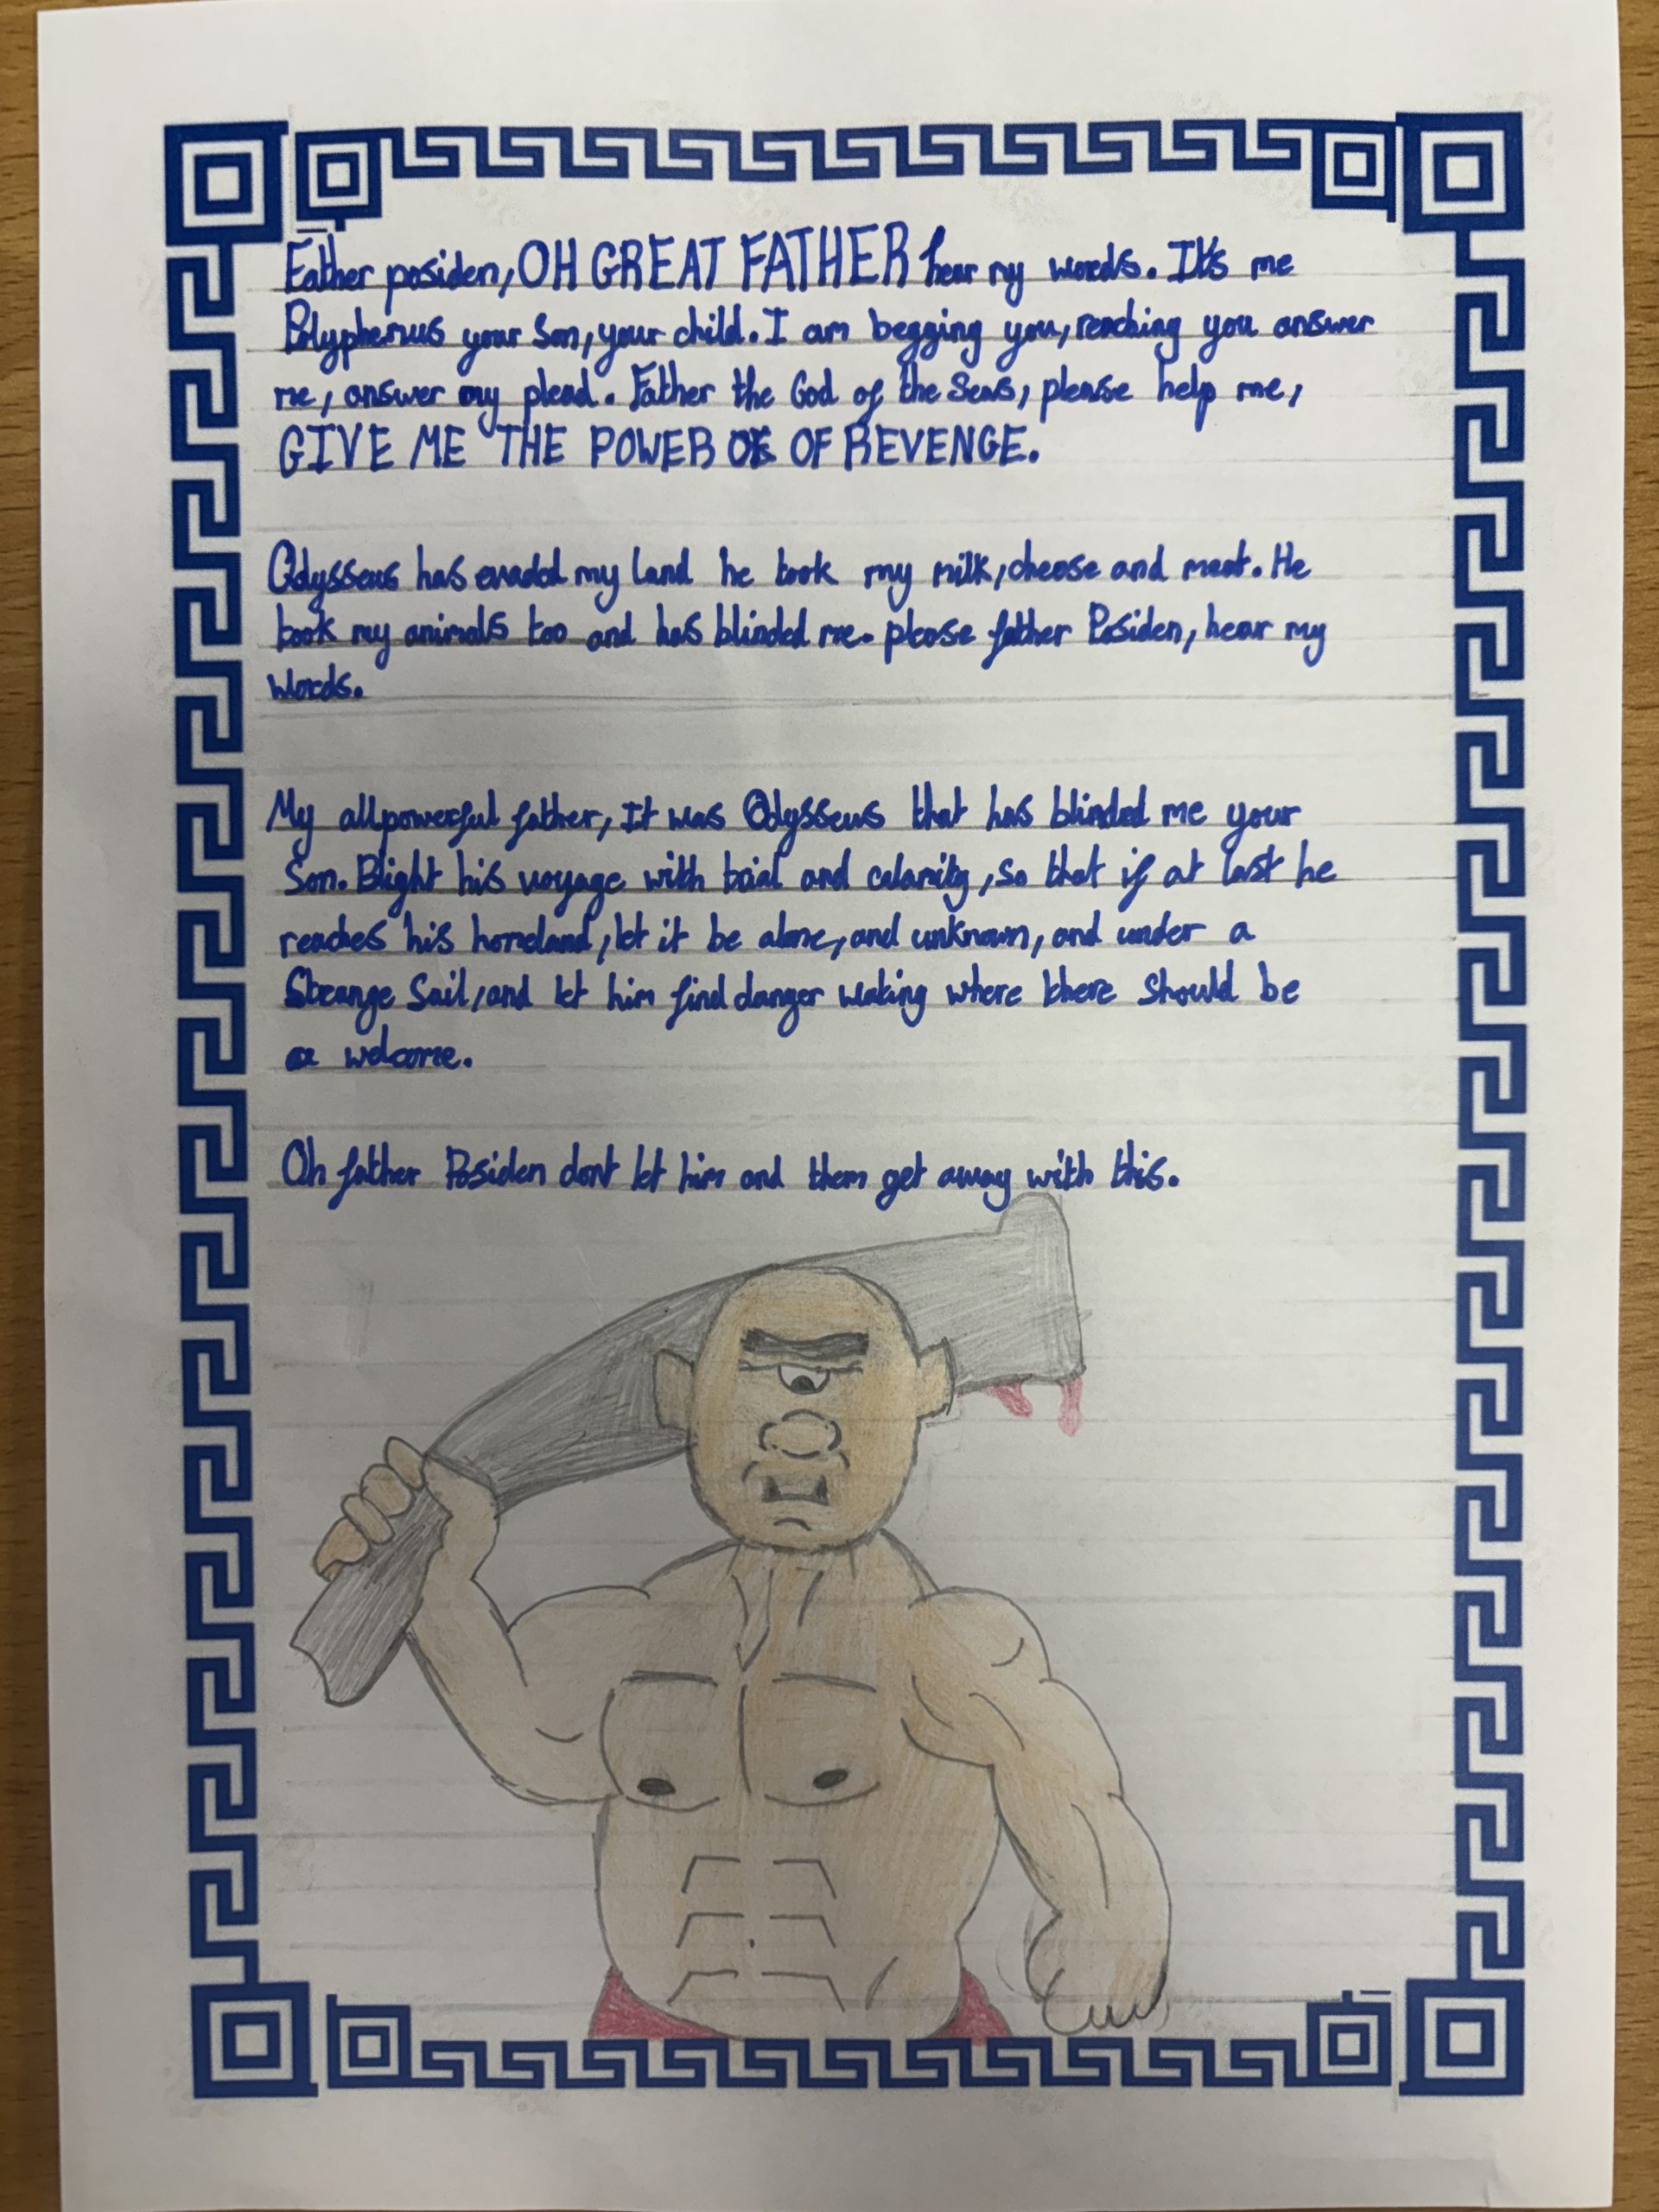 Father posiden, OH GREAT FATHER hear my words. It's me
Polyphemus your Son, your child. I am begging you, reaching you answer
me, answer my plead. Father the God of the Seas, please help me,
GIVE ME THE POWER OF REVENGE.
Odysseus has evaded my land he took my milk, cheese and meat. He
took my animals too and has blinded me. please father Posiden, hear my
words.
My allpowerful father, It was Odysseus that has blinded me your
Son. Blight his voyage with trial and calamity, so that if at last he
reaches his homeland, let it be alone, and unknown, and under a
Strange Sail, and let him find danger waking where there should be
a welcome.
Oh father Posiden dont let him and them get away with this.